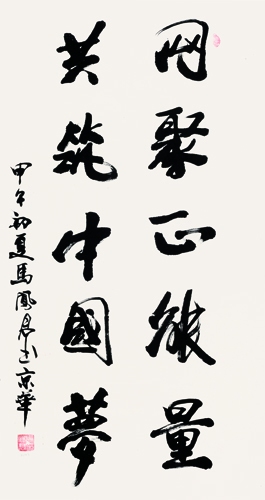 网聚正能量
共筑中國夢
甲午初夏馬鳳君书京華